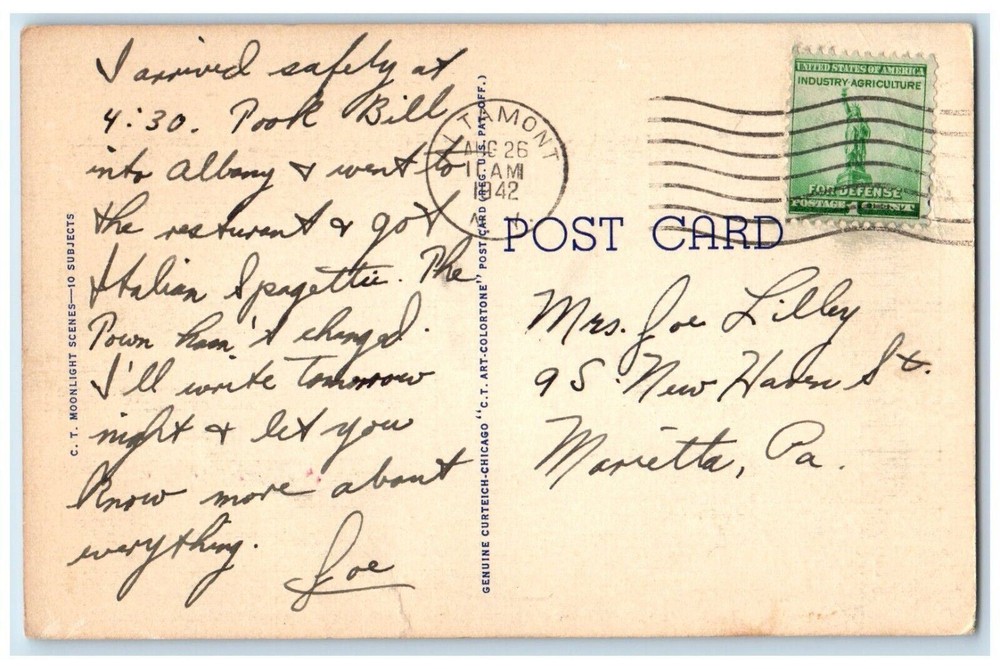 I arrived safely at
4:30. Took Bill
into Albany & went to
the resturent & got
Italian Spagettie. The
Town hasn't changed.
I'll write tomorrow
night & let you
know more about
everything.
Joe
C. T. MOONLIGHT SCENES—10 SUBJECTS
GENUINE CURTEICH-CHICAGO "C.T. ART-COLORTONE" POST CARD (REG. U.S. PAT. OFF.)
ALTAMONT
AUG 26
AM
1942
N.
UNITED STATES OF AMERICA
INDUSTRY·AGRICULTURE
FOR DEFENSE
POSTAGE 1 CENT
POST CARD
Mrs. Joe Lilley
95 New Haven St.
Marietta, Pa.